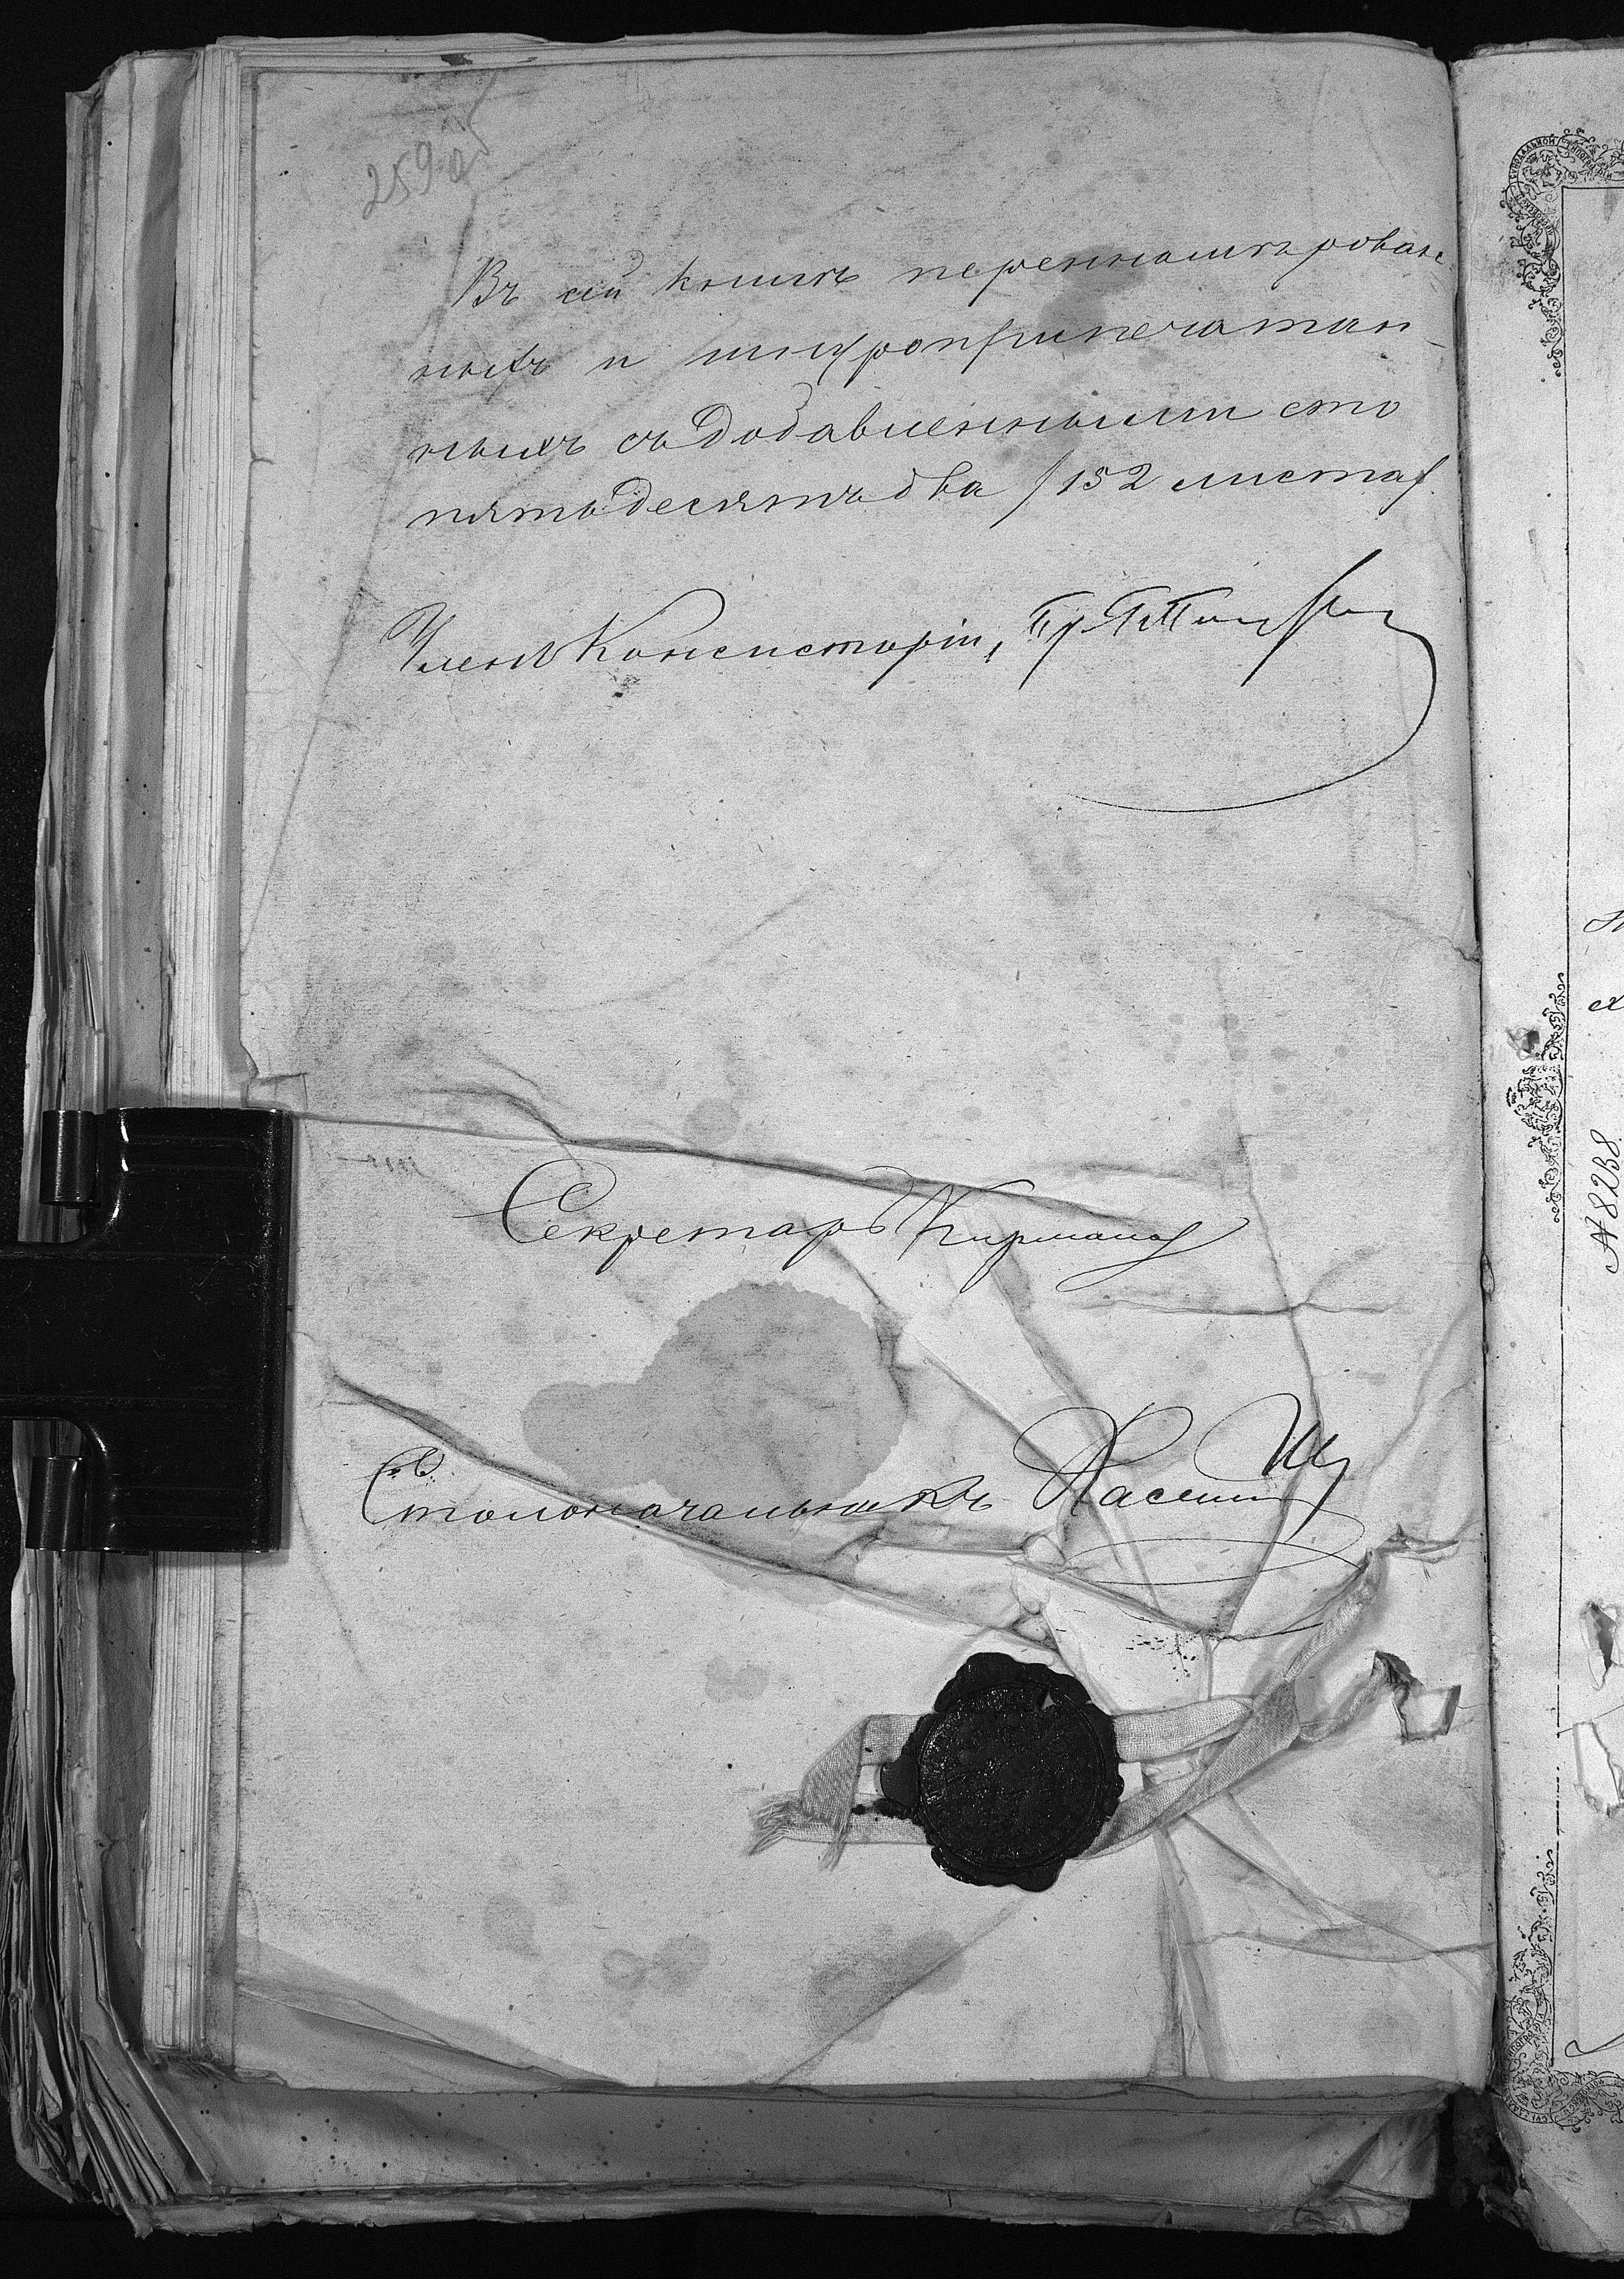 259 об
Въ сей книгѣ перенумерован-
ныхъ и шнуроприпечатан-
ныхъ съ добавленными сто
пятьдесятъ два /152 листа/.
Членъ Консисторіи,
Секретарь
Столоначальникъ
№ 8238